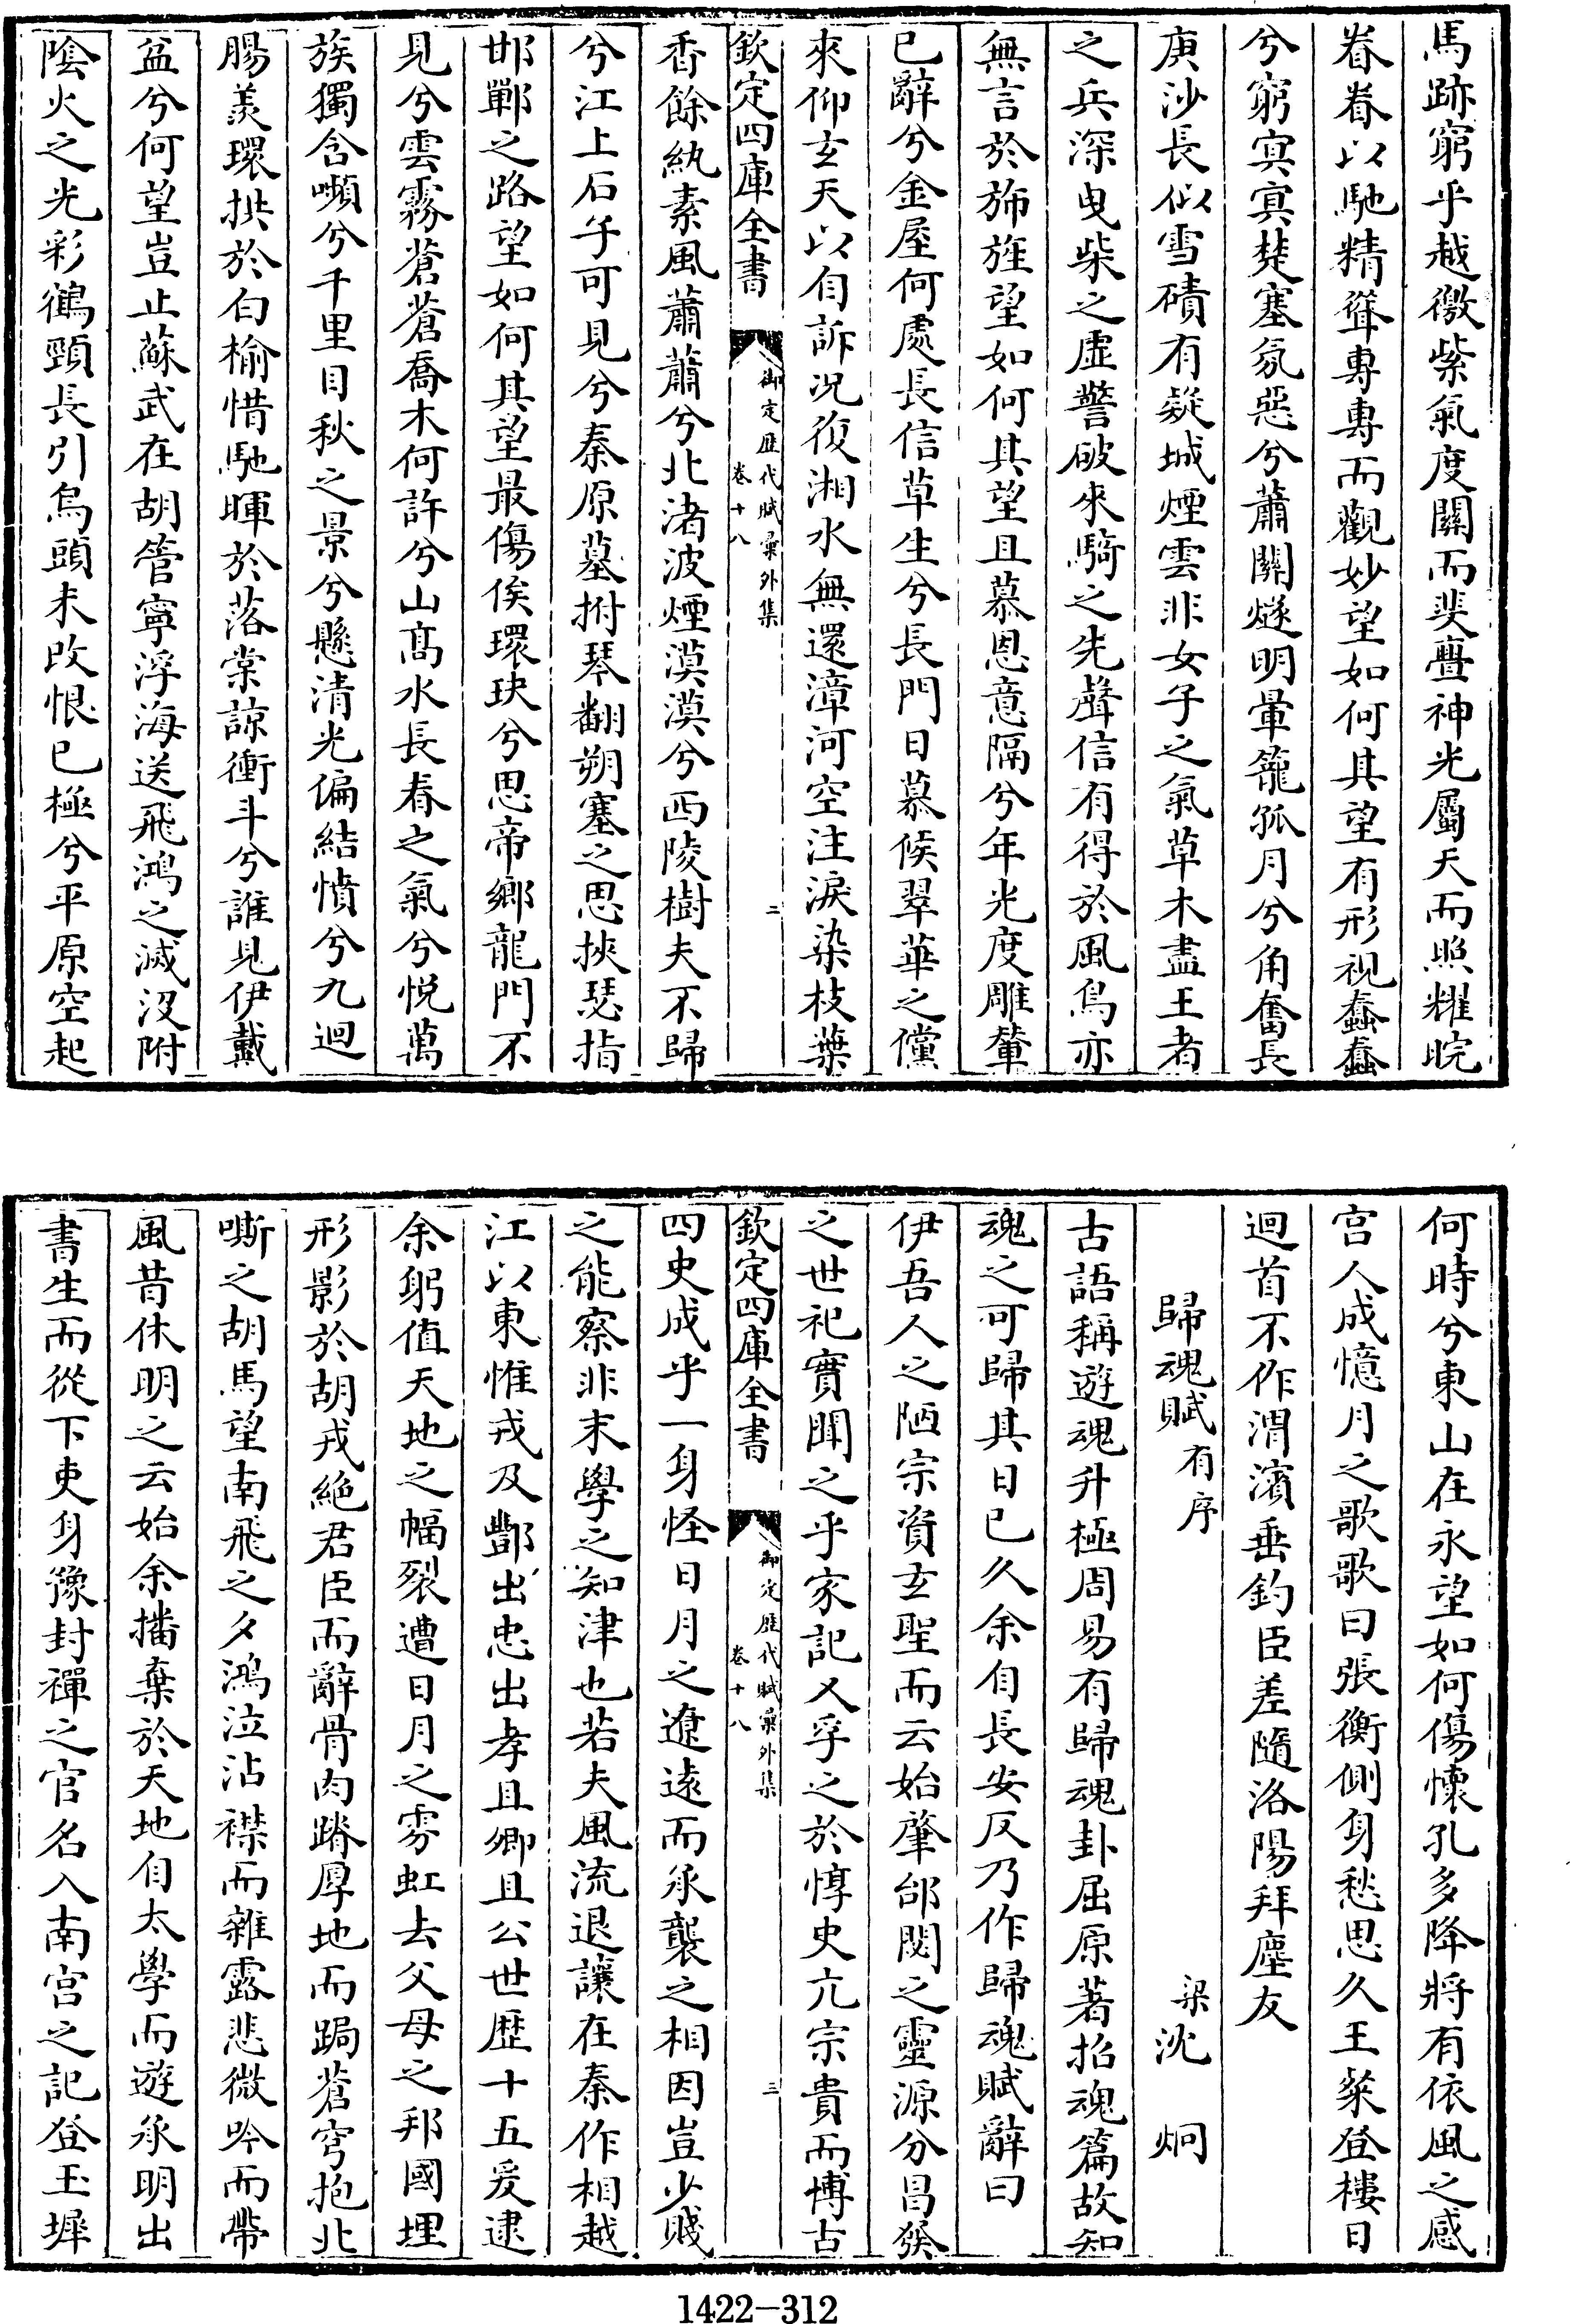 馬跡窮乎越徼紫氣度關而斐亹神光屬天而照耀睆
眷眷以馳精聳專專而觀妙望如何其望有形視蠢蠢
兮窮寘寘楚塞氛惡兮蕭關燧明暈籠孤月兮角奮長
庚沙長似雪磧有疑城煙雲非女子之氣草木盡王者
之兵深曳柴之虛警破來騎之先聲信有得於風鳥亦
無言於斾旌望如何其望且慕恩意隔兮年光度雕輦
已辭兮金屋何處長信草生兮長門日慕候翠華之儻
來仰玄天以自訴況復湘水無還漳河空注淚染枝葉
欽定四庫全書
御定歷代賦彙外集
卷十八
三
香餘紈素風蕭蕭兮北渚波煙漠漠兮西陵樹夫不歸
兮江上石子可見兮秦原墓拊琴翻朔塞之思挾瑟指
邯鄲之路望如何其望最傷俟環玦兮思帝鄉龍門不
見兮雲霧蒼蒼喬木何許兮山高水長春之氣兮悅萬
族獨含嚬兮千里目秋之景兮懸清光偏結憤兮九迴
腸羨環拱於白榆惜馳暉於落棠諒衝斗兮誰見伊戴
盆兮何望豈止蘇武在胡管寧浮海送飛鴻之滅沒附
陰火之光彩鶴頸長引烏頭未改恨已極兮平原空起
何時兮東山在永望如何傷懷孔多降將有依風之感
宮人成憶月之歌歌曰張衡側身愁思久王粲登樓日
迴首不作渭濱垂釣臣羞隨洛陽拜塵友
歸魂賦有序　梁沈炯
古語稱遊魂升極周易有歸魂卦屈原著招魂篇故知
魂之可歸其日已久余自長安反乃作歸魂賦辭曰
伊吾人之陋宗資玄聖而云始肇邰閱之靈源分昌發
之世祀實聞之乎家記又孚之於惇史亢宗貴而博古
欽定四庫全書
御定歷代賦彙外集
卷十八
三
四史成乎一身怪日月之遼遠而承襲之相因豈少賤
之能察非末學之知津也若夫風流退讓在秦作相越
江以東惟戎及酆出忠出孝且卿且公世歷十五爰逮
余躬值天地之幅裂遭日月之雰虹去父母之邦國埋
形影於胡戎絕君臣而辭骨肉蹐厚地而跼蒼穹抱北
嘶之胡馬望南飛之夕鴻泣沾襟而雜露悲微吟而帶
風昔休明之云始余播棄於天地自太學而遊承明出
書生而從下吏身豫封禪之官名入南宮之記登玉墀
1422-312